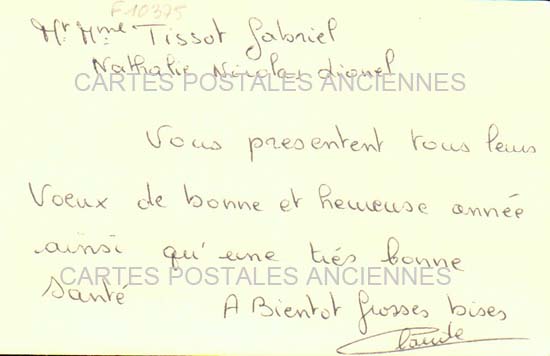 F10375
Mr Mme Tissot Gabriel
Nathalie Nicolas Lionel
CARTES POSTALES ANCIENNES
Vous presentent tous leurs
Voeux de bonne et heureuse année
ainsi qu'une trés bonne
CARTES POSTALES ANCIENNES
santé
A Bientot Grosses bises